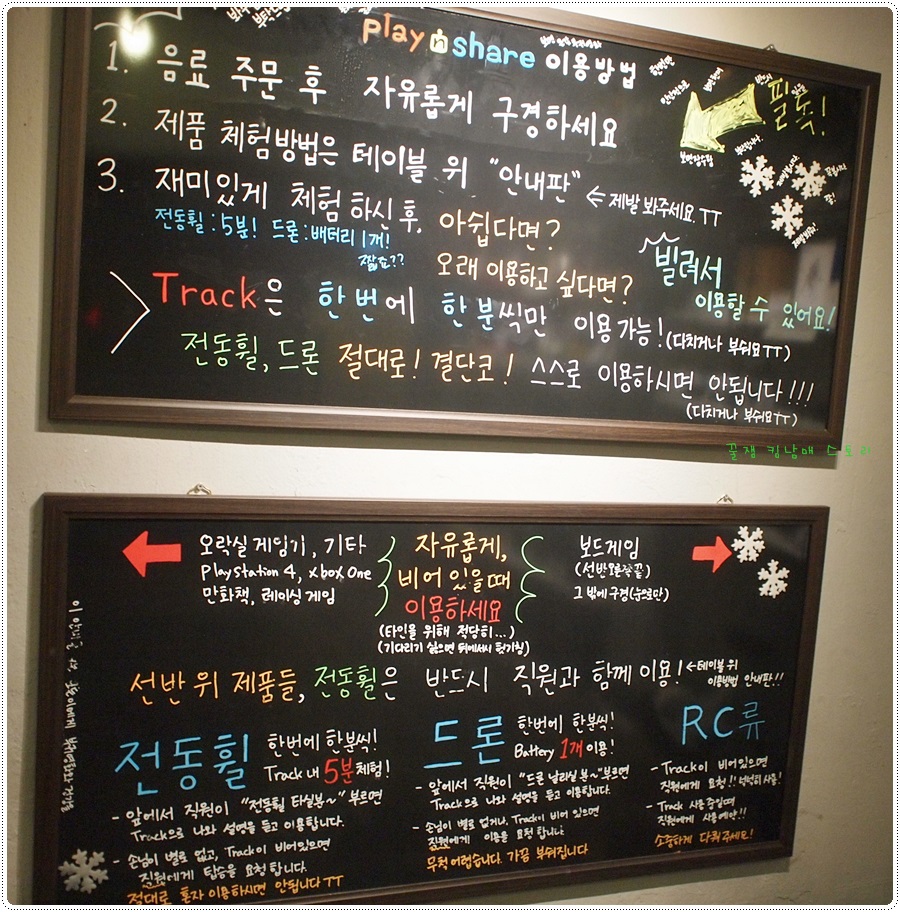 play n share 이용방법
필독!
1. 음료 주문 후 자유롭게 구경하세요
2. 제품 체험방법은 테이블 위 "안내판" ← 제발 봐주세요 TT
3. 재미있게 체험 하신 후, 아쉽다면?
전동휠 : 5분! 드론 : 배터리 1개!
짧죠??
오래 이용하고 싶다면? 빌려서
이용할 수 있어요!
Track은 한 번에 한 분씩만 이용 가능! (다치거나 부숴요 TT)
전동휠, 드론 절대로! 결단코! 스스로 이용하시면 안됩니다!!!
(다치거나 부숴요 TT)
꿀잼 킹남매 스토리
오락실 게임기, 기타
PlayStation 4, xbox One
만화책, 레이싱 게임
자유롭게,
비어 있을때
이용하세요
(타인을 위해 적당히...)
(기다리기 싫으면 뒤에서서 찡)
보드게임
(선반 오른쪽 끝)
그 밖에 구경(눈으로만)
선반 위 제품들, 전동휠은 반드시 직원과 함께 이용! ←테이블 위
이용방법 안내판!!
전동휠 한번에 한분씩!
Track 내 5분 체험!
- 앞에서 직원이 "전동휠 타실분~" 부르면
Track으로 나와 설명을 듣고 이용합니다.
- 손님이 별로 없고, Track이 비어있으면
직원에게 탑승을 요청 합니다.
절대로 혼자 이용하시면 안됩니다 TT
드론 한번에 한분씩!
Battery 1개 이용!
- 앞에서 직원이 "드론 날리실 분~" 부르면
Track으로 나와 설명을 듣고 이용합니다.
- 손님이 별로 없거나, Track이 비어 있으면
직원에게 이용을 요청 합니다
무척 어렵습니다. 가끔 부숴집니다
RC류
- Track이 비어있으면
직원에게 요청!!
- Track 사용중일때
직원에게
소중하게 다뤄주세요!